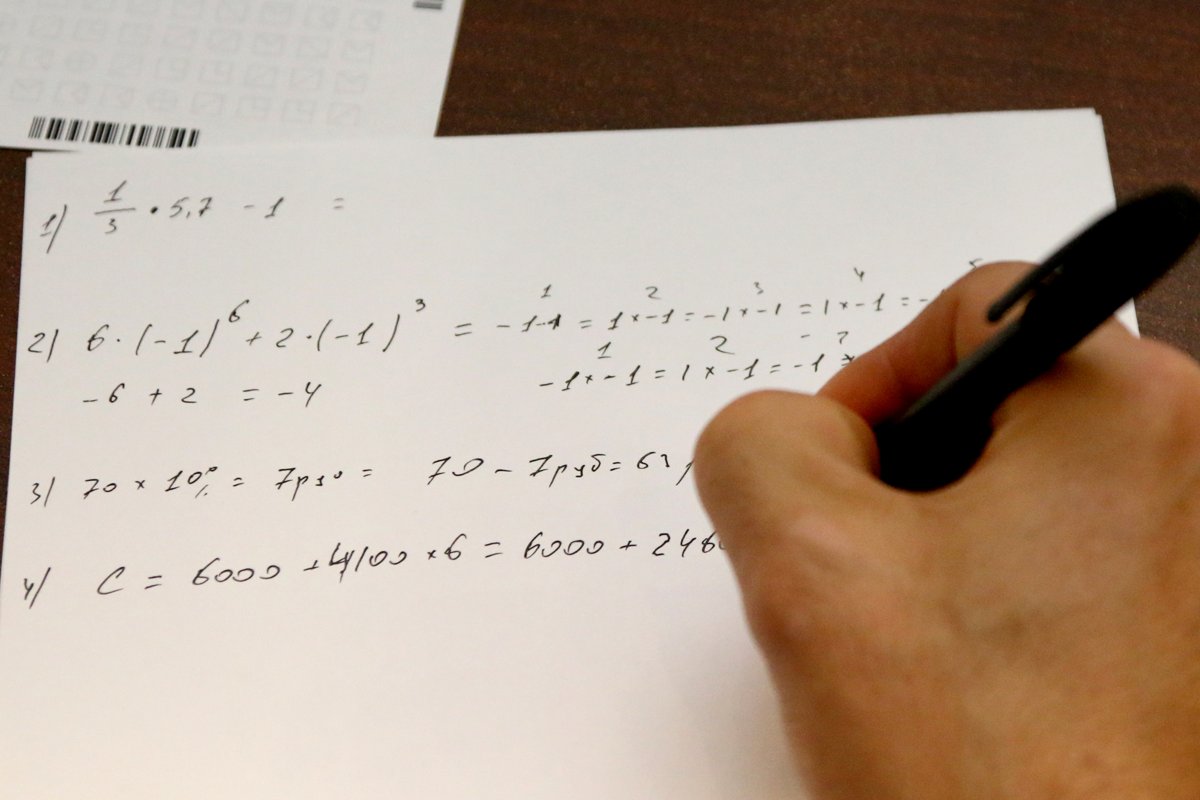 1) 1/3 · 5,7 - 1 =
1 2 3 4 5
2) 6 · (-1)⁶ + 2 · (-1)³ = -1·-1 = 1 × -1 = -1 × -1 = 1 × -1 = -
1 2 3
-6 + 2 = -4 -1 × -1 = 1 × -1 = -1 ×
3) 70 × 10% = 7руб = 70 - 7руб = 63
4) C = 6000 + 4100 × 6 = 6000 + 2460